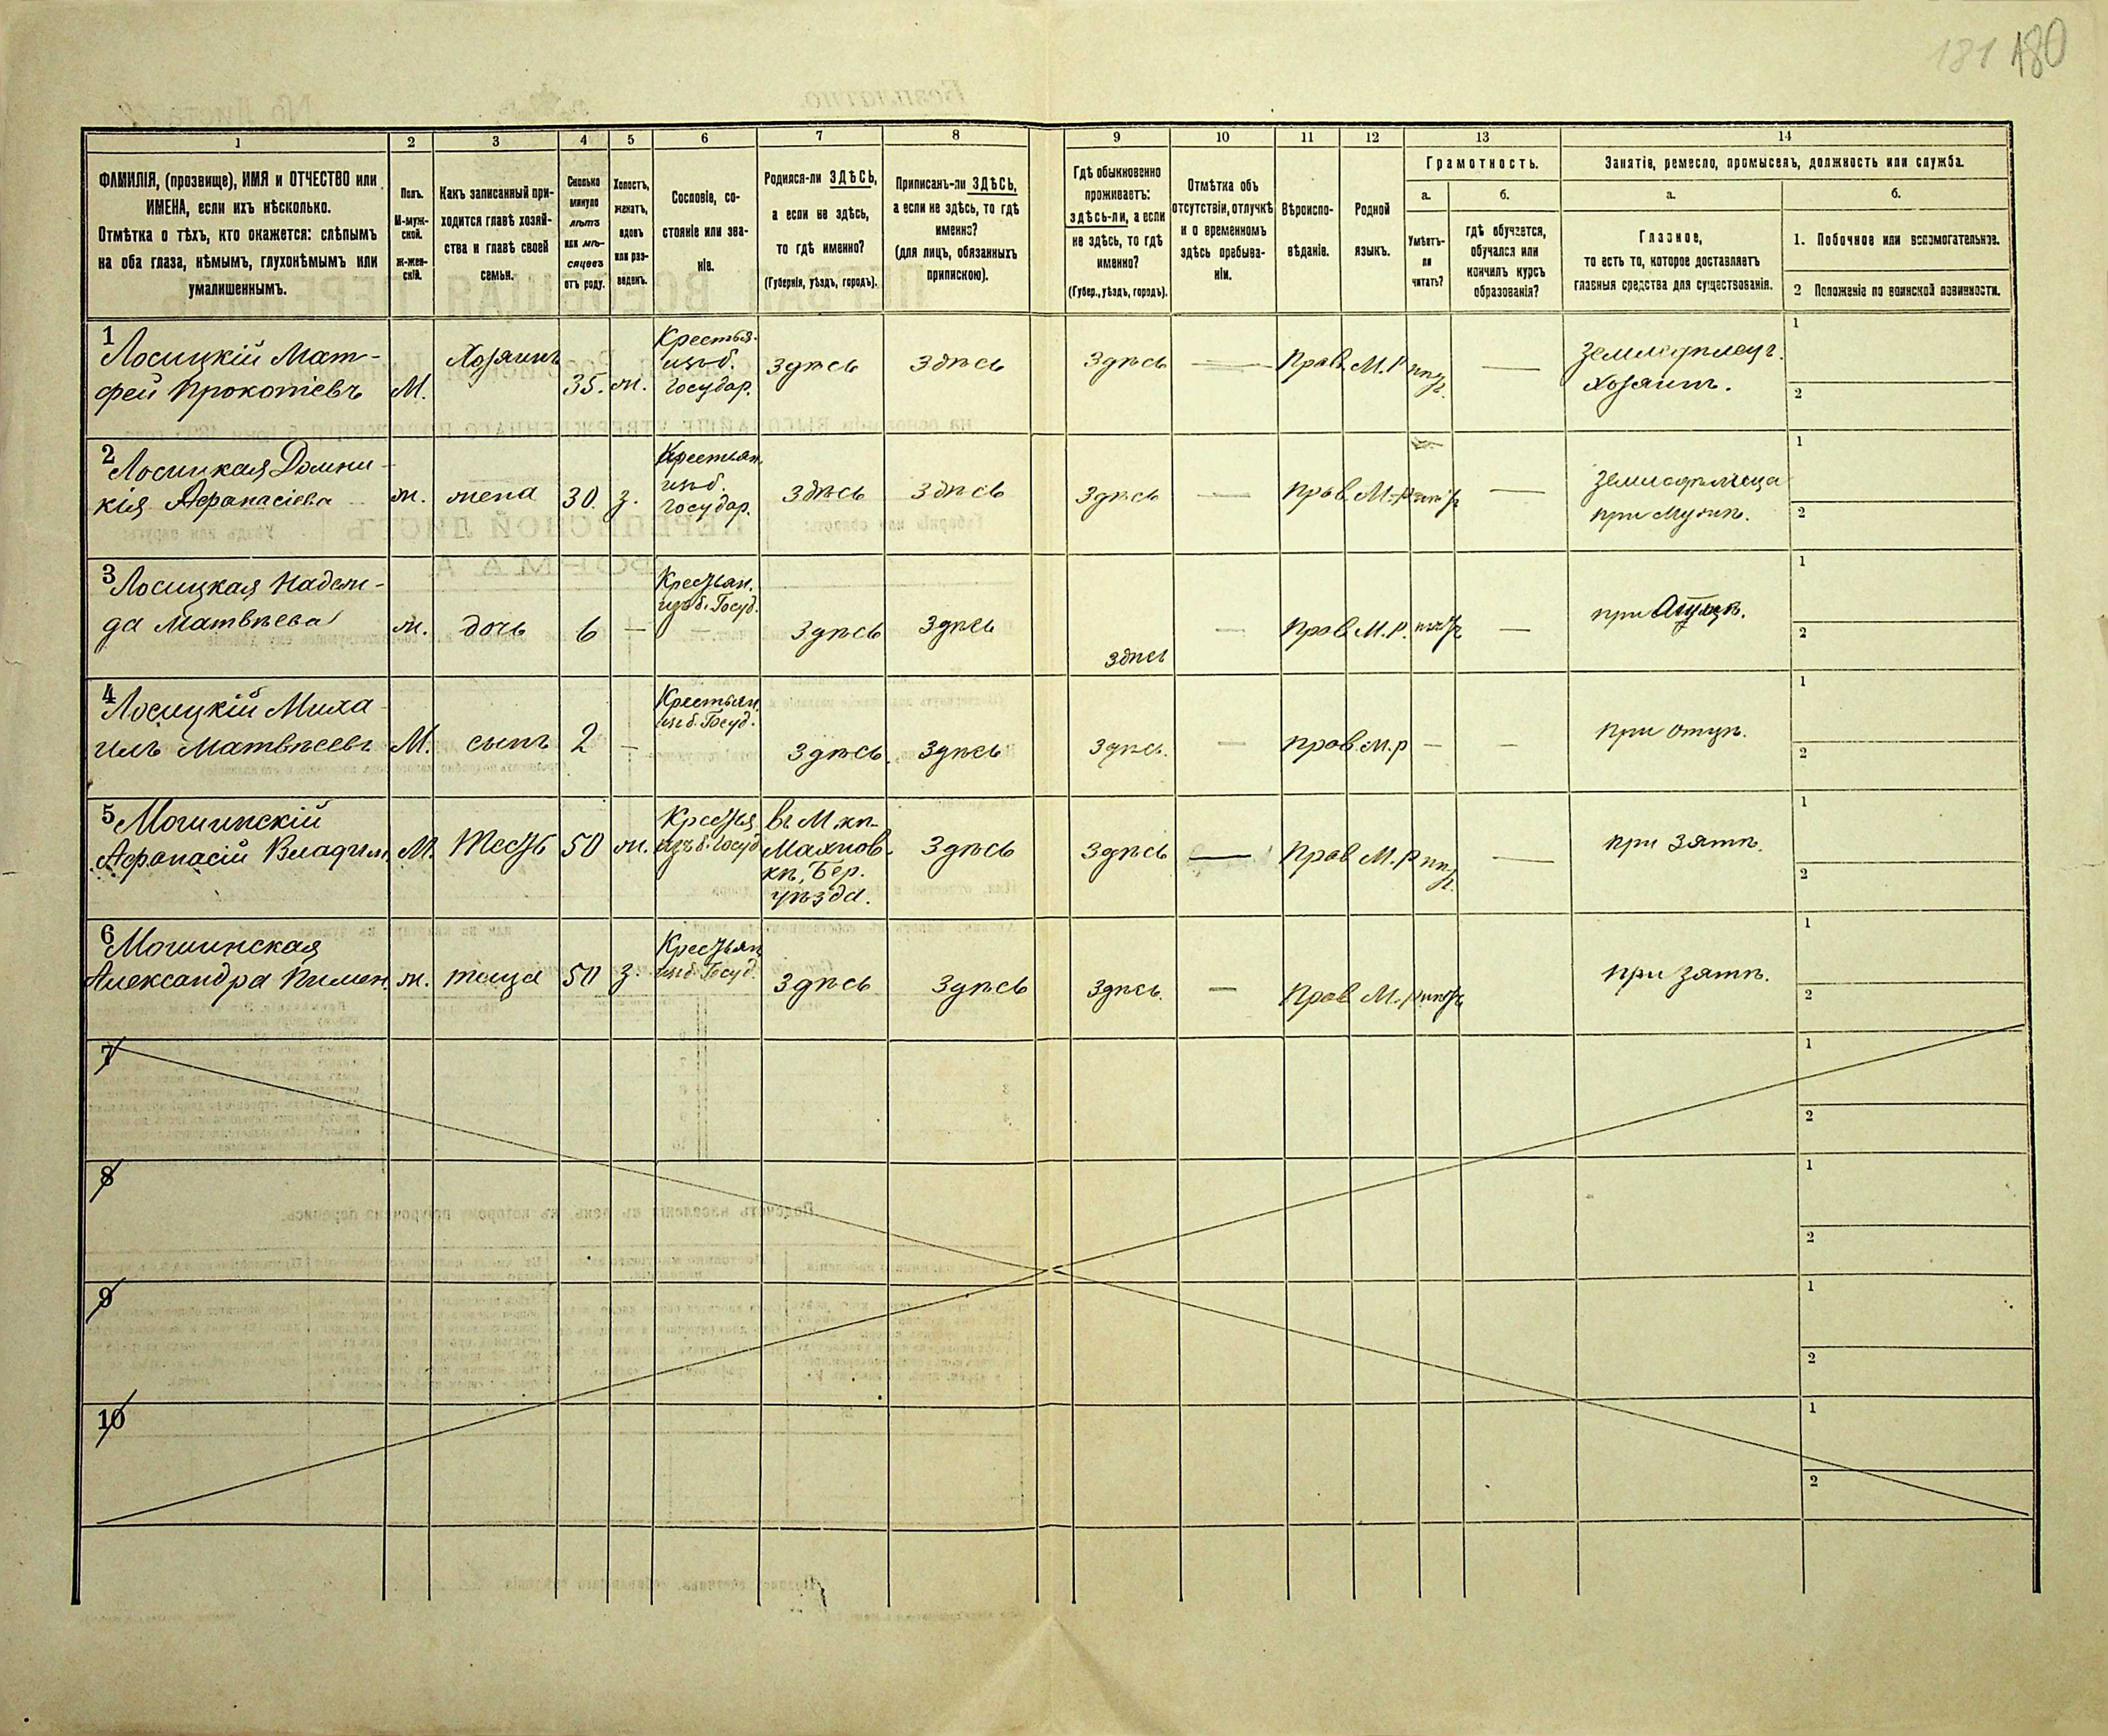 181 180
1
2
3
4
5
6
7
8
9
10
11
12
13
14
ФАМИЛІЯ, (прозвище), ИМЯ и ОТЧЕСТВО или
ИМЕНА, если ихъ нѣсколько.
Отмѣтка о тѣхъ, кто окажется: слѣпымъ
на оба глаза, нѣмымъ, глухонѣмымъ или
умалишеннымъ.
Полъ.
М-муж-
ской.
ж-жен-
скій.
Какъ записанный при-
ходится главѣ хозяй-
ства и главѣ своей
семьи.
Сколько
минуло
лѣтъ
или мѣ-
сяцевъ
отъ роду.
Холостъ,
женатъ,
вдовъ
или раз-
веденъ.
Сословіе, со-
стояніе или зва-
ніе.
Родился-ли ЗДѢСЬ,
а если не здѣсь,
то гдѣ именно?
(Губернія, уѣздъ, городъ).
Приписанъ-ли ЗДѢСЬ,
а если не здѣсь, то гдѣ
именно?
(для лицъ, обязанныхъ
припискою).
Гдѣ обыкновенно
проживаетъ:
здѣсь-ли, а если
не здѣсь, то гдѣ
именно?
(Губер., уѣздъ, городъ).
Отмѣтка объ
отсутствіи, отлучкѣ
и о временномъ
здѣсь пребыва-
ніи.
Вѣроиспо-
вѣданіе.
Родной
языкъ.
Грамотность.
а.
б.
Умѣетъ-
ли
читать?
гдѣ обучается,
обучался или
кончилъ курсъ
образованія?
Занятіе, ремесло, промыселъ, должность или служба.
а.
б.
Главное,
то есть то, которое доставляетъ
главныя средства для существованія.
1. Побочное или вспомогательное.
2 Положеніе по воинской повинности.
1
Лосицкій Мат-
фей Прокопіевъ
М.
Хозяинъ
35.
ж.
Крестья.
изъ б.
государ.
Здѣсь
Здѣсь
Здѣсь
—
Прав.
М.Р
—
Хозяинъ.
1
2
2
Лосицкая Домни-
кія Афанасіева
ж.
жена
30.
з.
Крестьян.
изъ б.
государ.
Здѣсь
Здѣсь
Здѣсь
—
Прав.
М.Р
—
при мужѣ.
1
2
3
Лосицкая Надеж-
да Матвѣева
ж.
дочь
6
—
Крестьян.
изъ б. Госуд.
—
Здѣсь
Здѣсь
здѣсь
—
Прав.
М.Р.
—
при отцѣ.
1
2
4
Лосицкій Миха-
илъ Матвѣевъ
М.
сынъ
2
—
Крестьян.
изъ б. Госуд.
Здѣсь.
Здѣсь
Здѣсь.
—
прав.
м.р
—
—
при отцѣ.
1
2
5
Могшинскій
Афанасій Владим.
М.
тесть
50
ж.
Крестья.
изъ б. Госуд.
Бер.
уѣзда.
Здѣсь
Здѣсь
—
Прав.
М.р
—
при зятѣ.
1
2
6
Могшинская
Александра Пимен.
ж.
теща
50
з.
Крестьян.
изъ б. Госуд.
Здѣсь
Здѣсь
Здѣсь.
—
Прав.
М.р
при зятѣ.
1
2
7
1
2
8
1
2
9
1
2
10
1
2